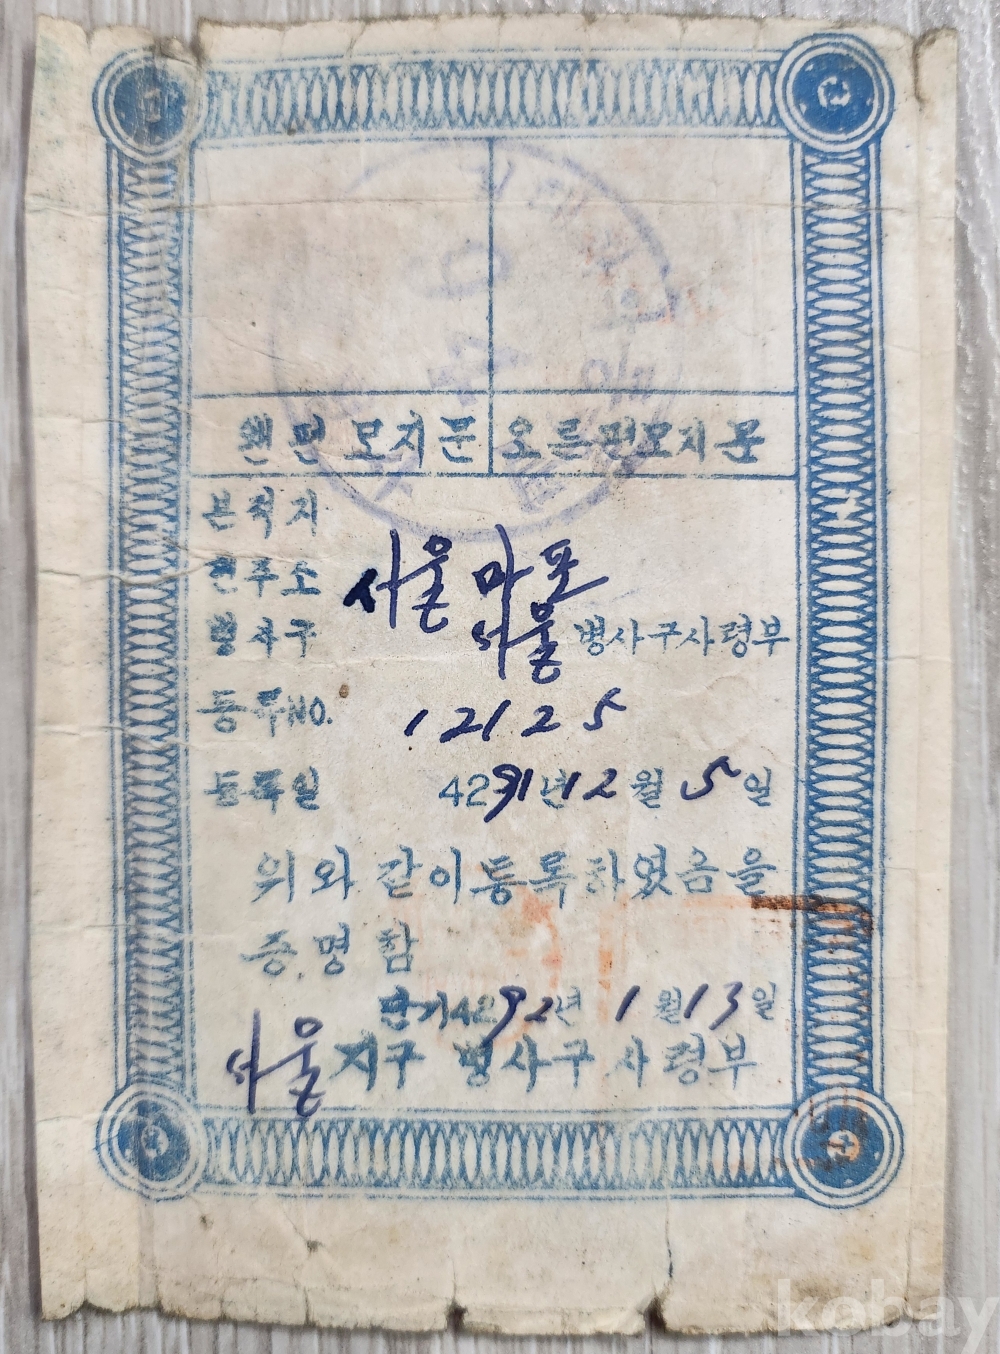 왼편 모지문 오른편모지문
본적지
현주소 서울 마포
병사구 서울 병사구사령부
등록NO. 12125
등록일 4291년 12월 5일
위와 같이 등록하였금을
증명함
단기4292년 1월 13일
서울지구 병사구 사령부
kobay